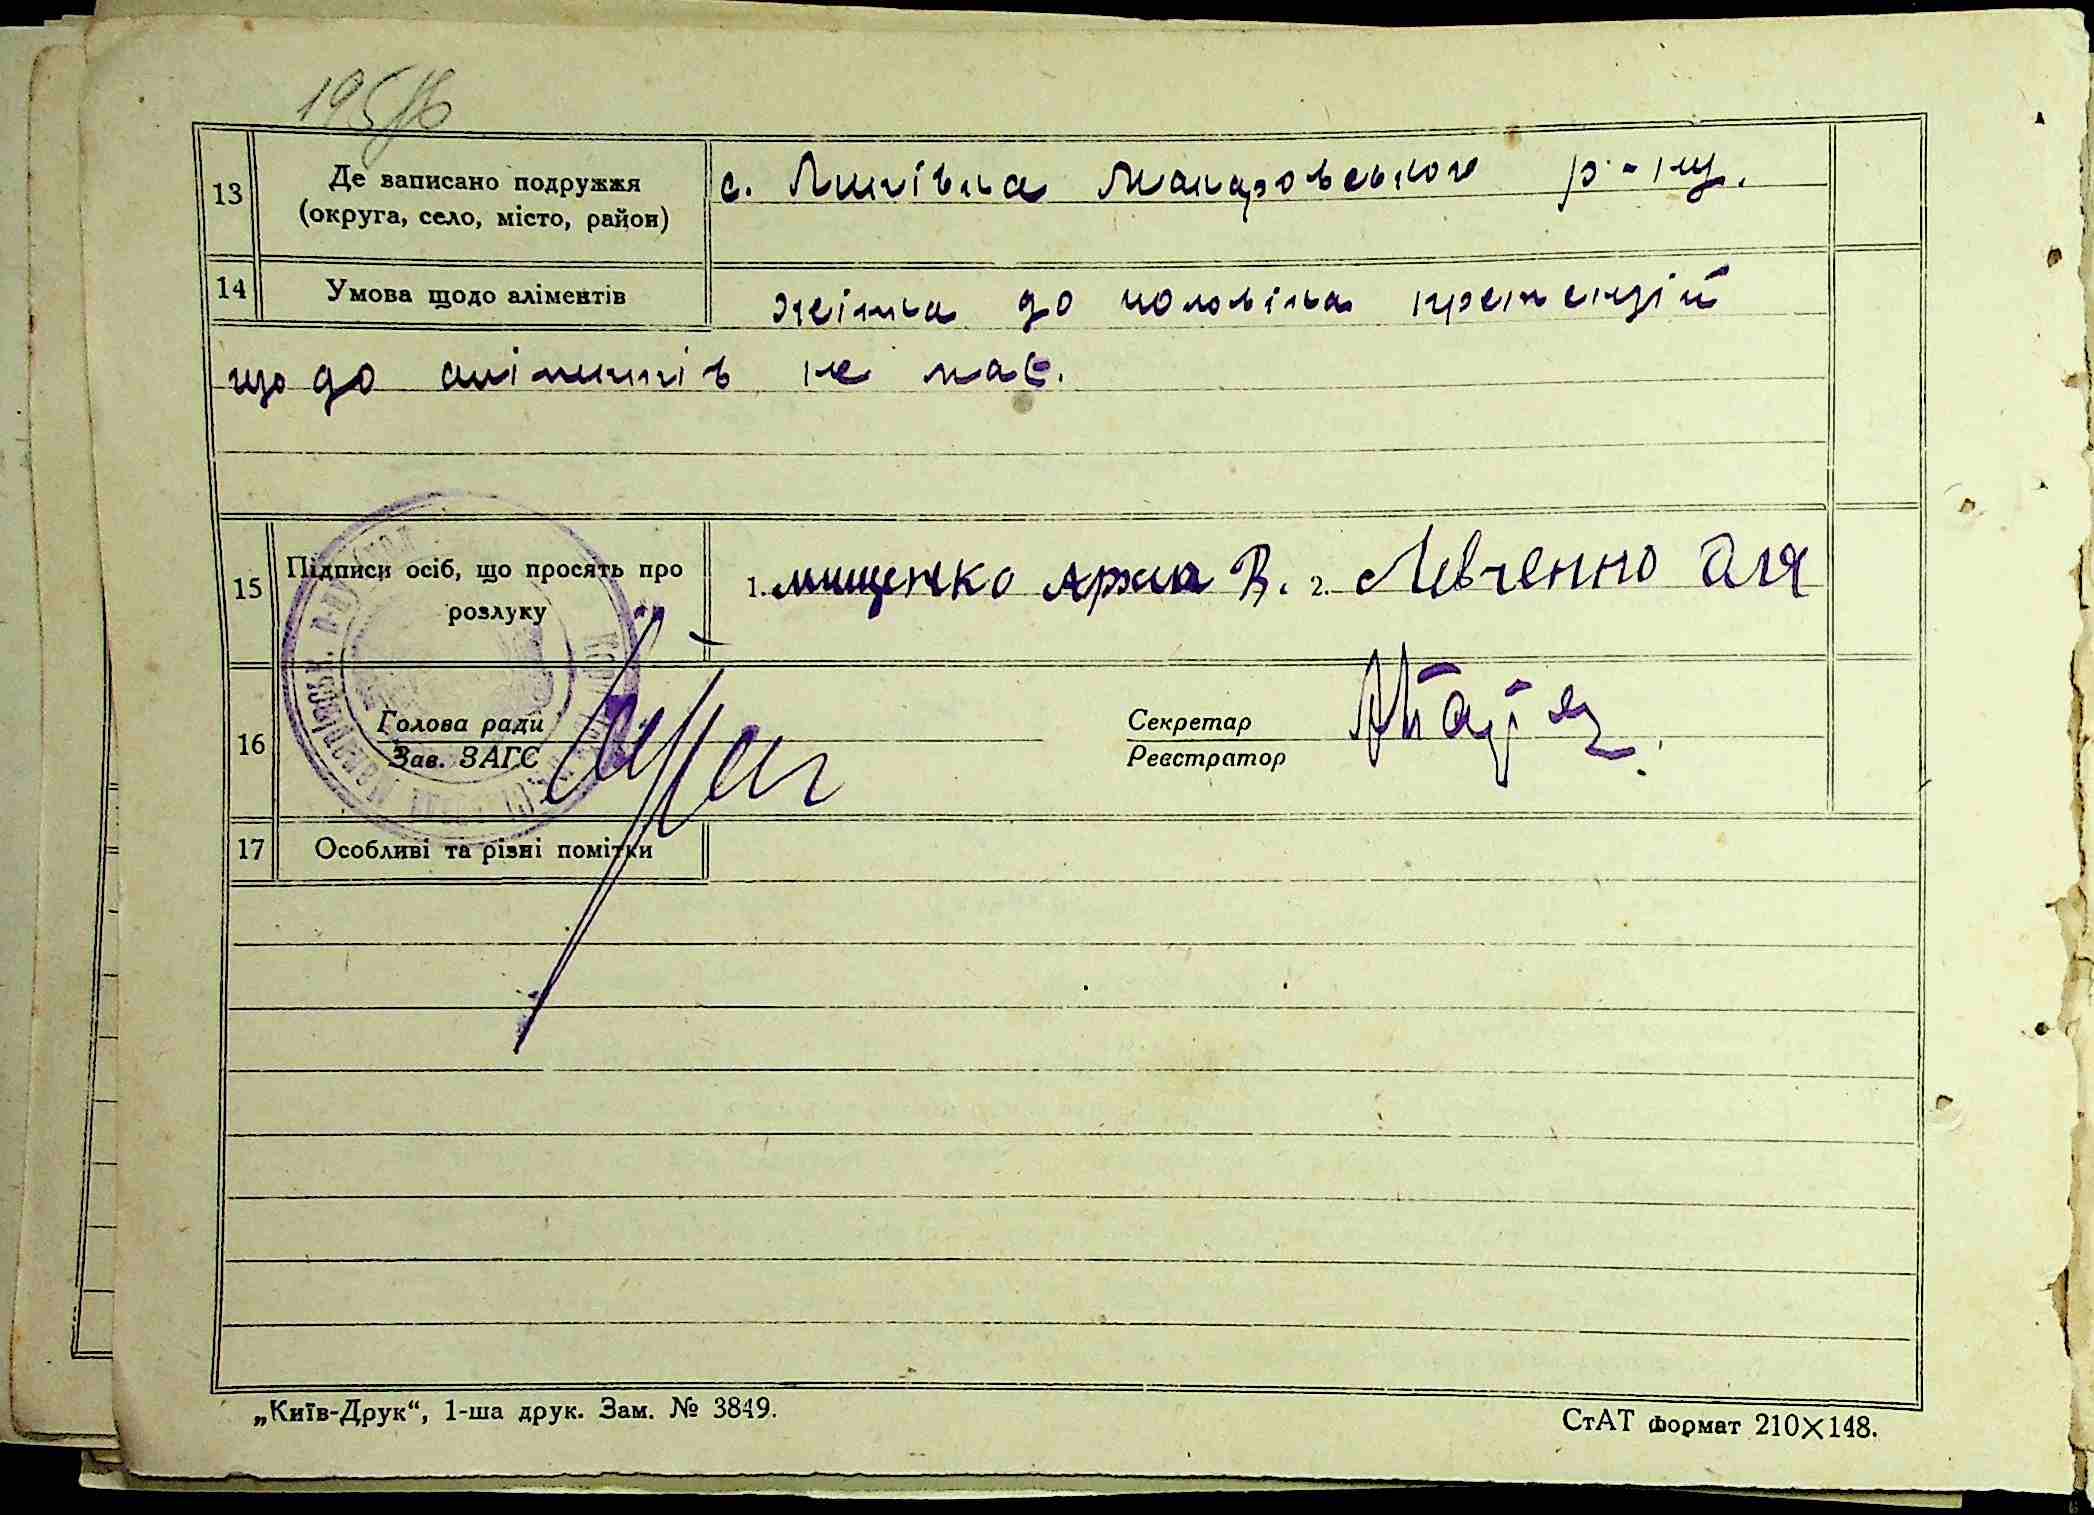 13 Де записано подружжя
(округа, село, місто, район)
с. Липівка Макаровського р-ну.
14 Умова щодо аліментів
жінка до чоловіка претензій
що до аліментів не має.
15 Підписи осіб, що просять про
розлуку
1. Мищенко В. 2. Левченко Оля
16 Голова ради
Зав. ЗАГС
Секретар
Реєстратор
17 Особливі та різні помітки
„Київ-Друк“, 1-ша друк. Зам. № 3849.
СтАТ формат 210×148.